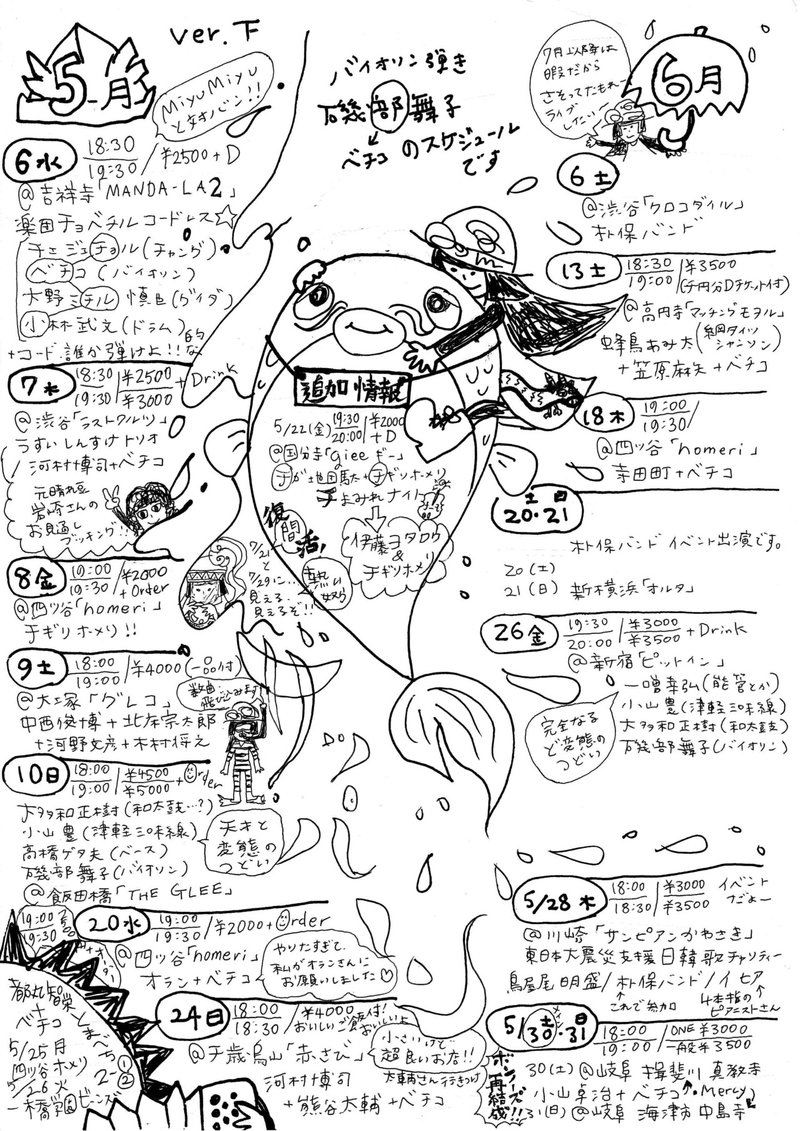 ver.下
5月
MiyuMiyu
と対バン!!
バイオリン弾き
磯部舞子
ベチコ のスケジュール
です
7月以降は
暇だから
さそってたもれー
ライブ
したい
6月
6水 18:30/19:30/¥2500+D
@吉祥寺「MANDA-LA2」
楽田チョベチルコードレス☆
チェジェチョル(チャング)
ベチコ(バイオリン)
大野ミチル慎臣(ダイダ)
小林武文(ドラム)
+コード誰か弾けよ!!的な
7木 18:30/19:30/¥2500/¥3000+Drink
@渋谷「ラストワルツ」
うすいしんすけトリオ
河村博司+ベチコ
元晴れ豆
岩崎さんの
お見通し
ブッキング!!
8金 19:00/19:30/¥2000+Order
@四ツ谷「homeri」
チギリホメリ!!
9土 18:00/19:00/¥4000(一品付)
@大塚「グレコ」
中西俊博+北床宗太郎
+河野文彦+木村将之
数曲
飛び込みます
10日 18:00/19:00/¥4500/¥5000+Order
大多和正樹(和太鼓…?)
小山豊(津軽三味線)
高橋ゲタ夫(ベース)
磯部舞子(バイオリン)
@飯田橋「THE GLEE」
天才と
変態の
つどい
20水 19:00/¥2000+Order
@四ツ谷「homeri」
オラン+ベチコ
やりたすぎて、
私がオランさんに
お願いしました♡
24日 18:00/18:30/¥4000
おいしいご飯付!
おいしいよ
@千歳烏山「赤さび」
河村博司
+熊谷太輔+ベチコ
小さいけど
超良いお店!!
太輔さん行きつけ
19:00
19:30
+
ベチコ
5/25月
四ツ谷ホメリ
5/26火
追加情報
5/22(金) 19:30/20:00/¥2000+D
@国分寺「gieeギー」
チが地団駄+チギリホメリ
チよみれナイト
伊藤ヨタロウ
&
チギリホメリ
復活!
6土
@渋谷「クロコダイル」
朴保バンド
13土 18:30/19:00/¥3500
(千円分Dチケット付)
@高円寺「マッチングモヲル」
蜂鳥あみ太(網タイツシャンソン)
+笠原麻矢+ベチコ
18木 19:00/19:30/
@四ツ谷「homeri」
寺田町+ベチコ
土日
20・21
朴保バンド イベント出演です。
20(土)
21(日) 新横浜「オルタ」
26金 19:30/20:00/¥3000/¥3500+Drink
@新宿「ピットイン」
一噌幸弘(能管とか)
小山豊(津軽三味線)
大多和正樹(和太鼓)
磯部舞子(バイオリン)
完全なる
ど変態の
つどい
5/28木 18:00/18:30/¥3000/¥3500 イベント
つだよー
@川崎「サンピアンかわさき」
東日本大震災支援日韓歌チャリティー
鳥屋尾明盛/朴保バンド/イヒア
これで参加
4本指の
ピアニストさん
5/30土・31日 18:00/19:00/ONE¥3000/一般¥3500
ボンノーズ
再結成!!
30(土)@岐阜 揖斐川 真教寺
小山卓治+ベチコ Mercy
31(日)@岐阜 海津市 中島寺